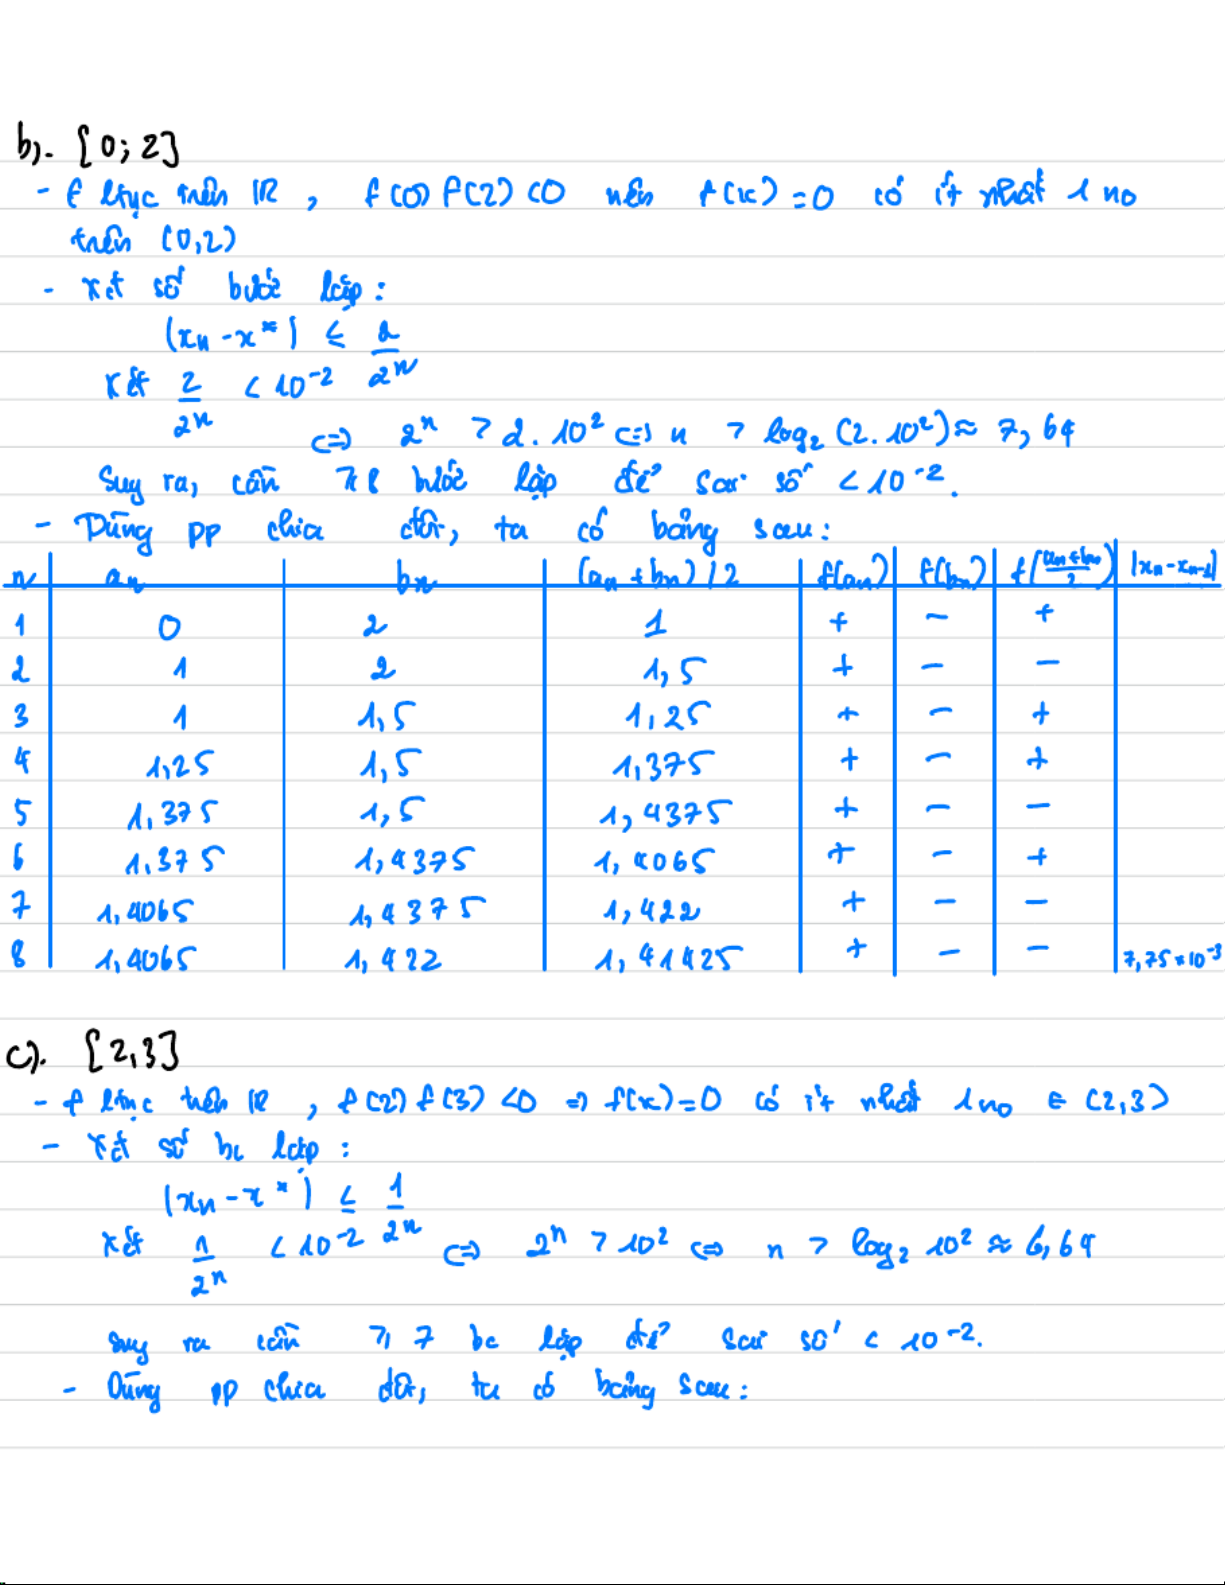 b). [0; 2]
- f ltục trên IR , f(0) f(2) <0 nên f(x) = 0 có ít nhất 1 no
trên (0,2)
- xét số bước lặp :
|xn - x*| ≤ 2/2^n
Xét 2/2^n < 10^-2
<=> 2^n > 2. 10^2 <=> n > log2 (2. 10^2) ≈ 7, 64
Suy ra, cần ≥ 8 bước lặp để sai số < 10^-2.
- Dùng pp chia đôi, ta có bảng sau :
n an bn (an + bn) / 2 f(an) f(bn) f((an + bn)/2) |xn - xn-1|
1 0 2 1 + - +
2 1 2 1,5 + - -
3 1 1,5 1,25 + - +
4 1,25 1,5 1,375 + - +
5 1,375 1,5 1,4375 + - -
6 1,375 1,4375 1,4065 + - +
7 1,4065 1,4375 1,422 + - -
8 1,4065 1,422 1,41425 + - - 7,75 * 10^-3
c). [2,3]
- f ltục trên IR , f(2) f(3) <0 => f(x) = 0 có ít nhất 1 no ∈ (2,3)
- Xét số bc lặp :
|xn - x*| ≤ 1/2^n
Xét 1/2^n < 10^-2 <=> 2^n > 10^2 <=> n > log2 10^2 ≈ 6,64
Suy ra cần ≥ 7 bc lặp để sai số < 10^-2.
- Dùng pp chia đôi, ta có bảng sau :